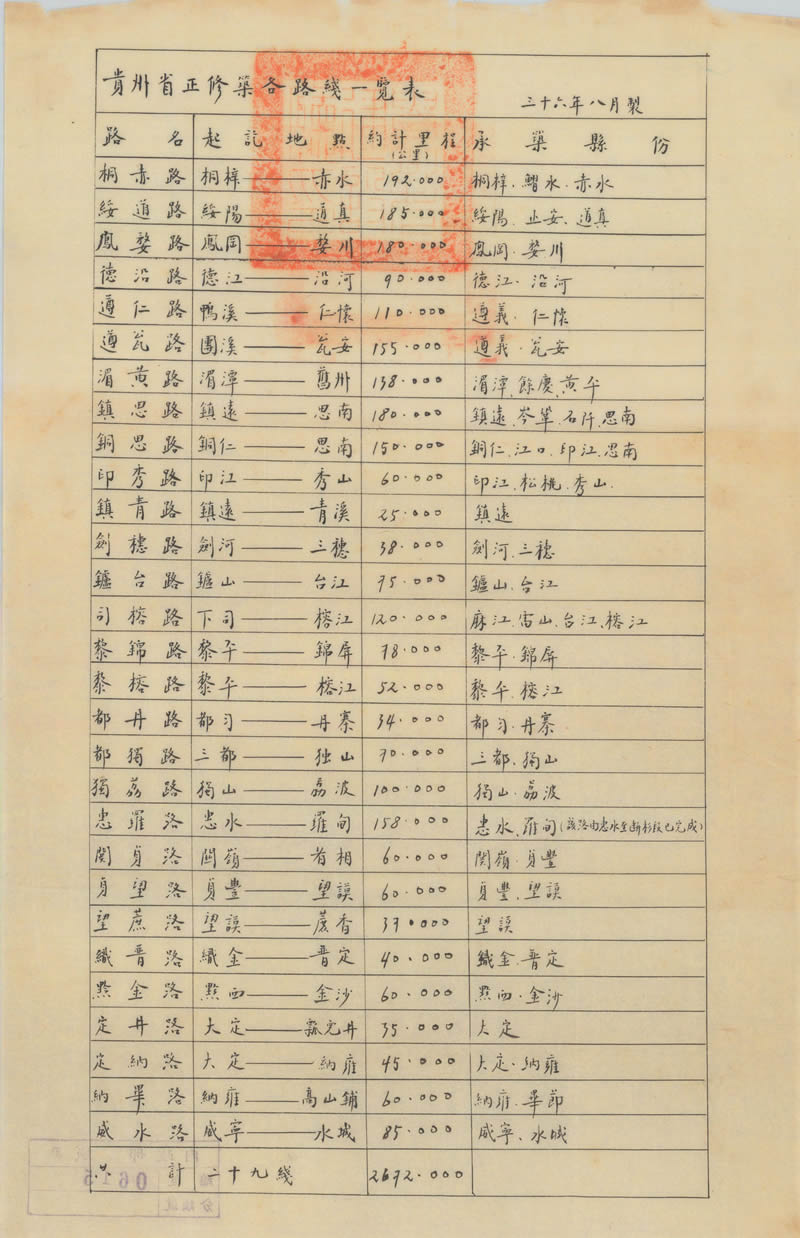 貴州省正修築各路綫一覽表
三十六年八月製
路名 起訖地點 約計里程(公里) 承築縣份
桐赤路 桐梓——赤水 192.000 桐梓.鰼水.赤水
綏道路 綏陽——道真 185.000 綏陽.正安.道真
鳳婺路 鳳岡——婺川 180.000 鳳岡.婺川
德沿路 德江——沿河 90.000 德江.沿河
遵仁路 鴨溪——仁懷 110.000 遵義.仁懷
遵瓮路 團溪——瓮安 155.000 遵義.瓮安
湄黄路 湄潭——舊州 138.000 湄潭、餘慶、黄平
鎮思路 鎮遠——思南 180.000 鎮遠、岑鞏、石阡、思南
銅思路 銅仁——思南 150.000 銅仁、江口、印江、思南
印秀路 印江——秀山 60.000 印江、松桃.秀山.
鎮青路 鎮遠——青溪 25.000 鎮遠
劍穗路 劍河——三穗 38.000 劍河、三穗
鑪台路 鑪山——台江 75.000 鑪山、台江
司榕路 下司——榕江 120.000 麻江、雷山、台江、榕江
黎錦路 黎平——錦屏 78.000 黎平.錦屏
黎榕路 黎平——榕江 52.000 黎平.榕江
都丹路 都匀——丹寨 34.000 都匀.丹寨
都獨路 三都——独山 70.000 三都、獨山
獨荔路 獨山——荔波 100.000 獨山.荔波
惠羅路 惠水——羅甸 158.000 惠水、羅甸(該路由惠水至断杉段已完成)
関貞路 関嶺——者相 60.000 関嶺.貞豐
貞望路 貞豐——望謨 60.000 貞豐、望謨
望蔗路 望謨——蔗香 37.000 望謨
織普路 織金——普定 40.000 織金.普定
黔金路 黔西——金沙 60.000 黔西.金沙
定井路 大定——瓢兒井 35.000 大定
定納路 大定——納雍 45.000 大定.納雍
納畢路 納雍——高山鋪 60.000 納雍.畢節
威水路 威寧——水城 85.000 威寧、水城
共計 二十九綫 2672.000
0615